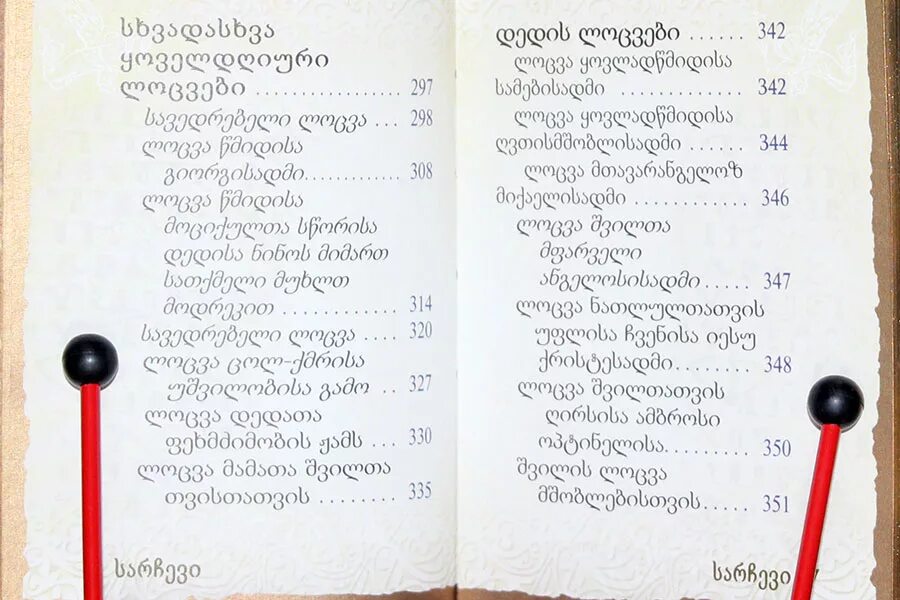 სხვადასხვა
ყოველდღიური
ლოცვები ................. 297
სავედრებელი ლოცვა ... 298
ლოცვა წმიდისა
გიორგისადმი............. 308
ლოცვა წმიდისა
მოციქულთა სწორისა
დედისა ნინოს მიმართ
სათქმელი მუხლთ
მოდრეკით ............ 314
სავედრებელი ლოცვა .... 320
ლოცვა ცოლ-ქმრისა
უშვილობისა გამო .. 327
ლოცვა დედათა
ფეხმძიმობის ჟამს ... 330
ლოცვა მამათა შვილთა
თვისთათვის ........ 335
სარჩევი
დედის ლოცვები ...... 342
ლოცვა ყოვლადწმიდისა
სამებისადმი ............ 342
ლოცვა ყოვლადწმიდისა
ღვთისმშობლისადმი ..... 344
ლოცვა მთავარანგელოზ
მიქაელისადმი ............ 346
ლოცვა შვილთა
მფარველი
ანგელოსისადმი..... 347
ლოცვა ნათლულთათვის
უფლისა ჩვენისა იესუ
ქრისტესადმი........ 348
ლოცვა შვილთათვის
ღირსისა ამბროსი
ოპტინელისა......... 350
შვილის ლოცვა
მშობლებისთვის..... 351
სარჩევი